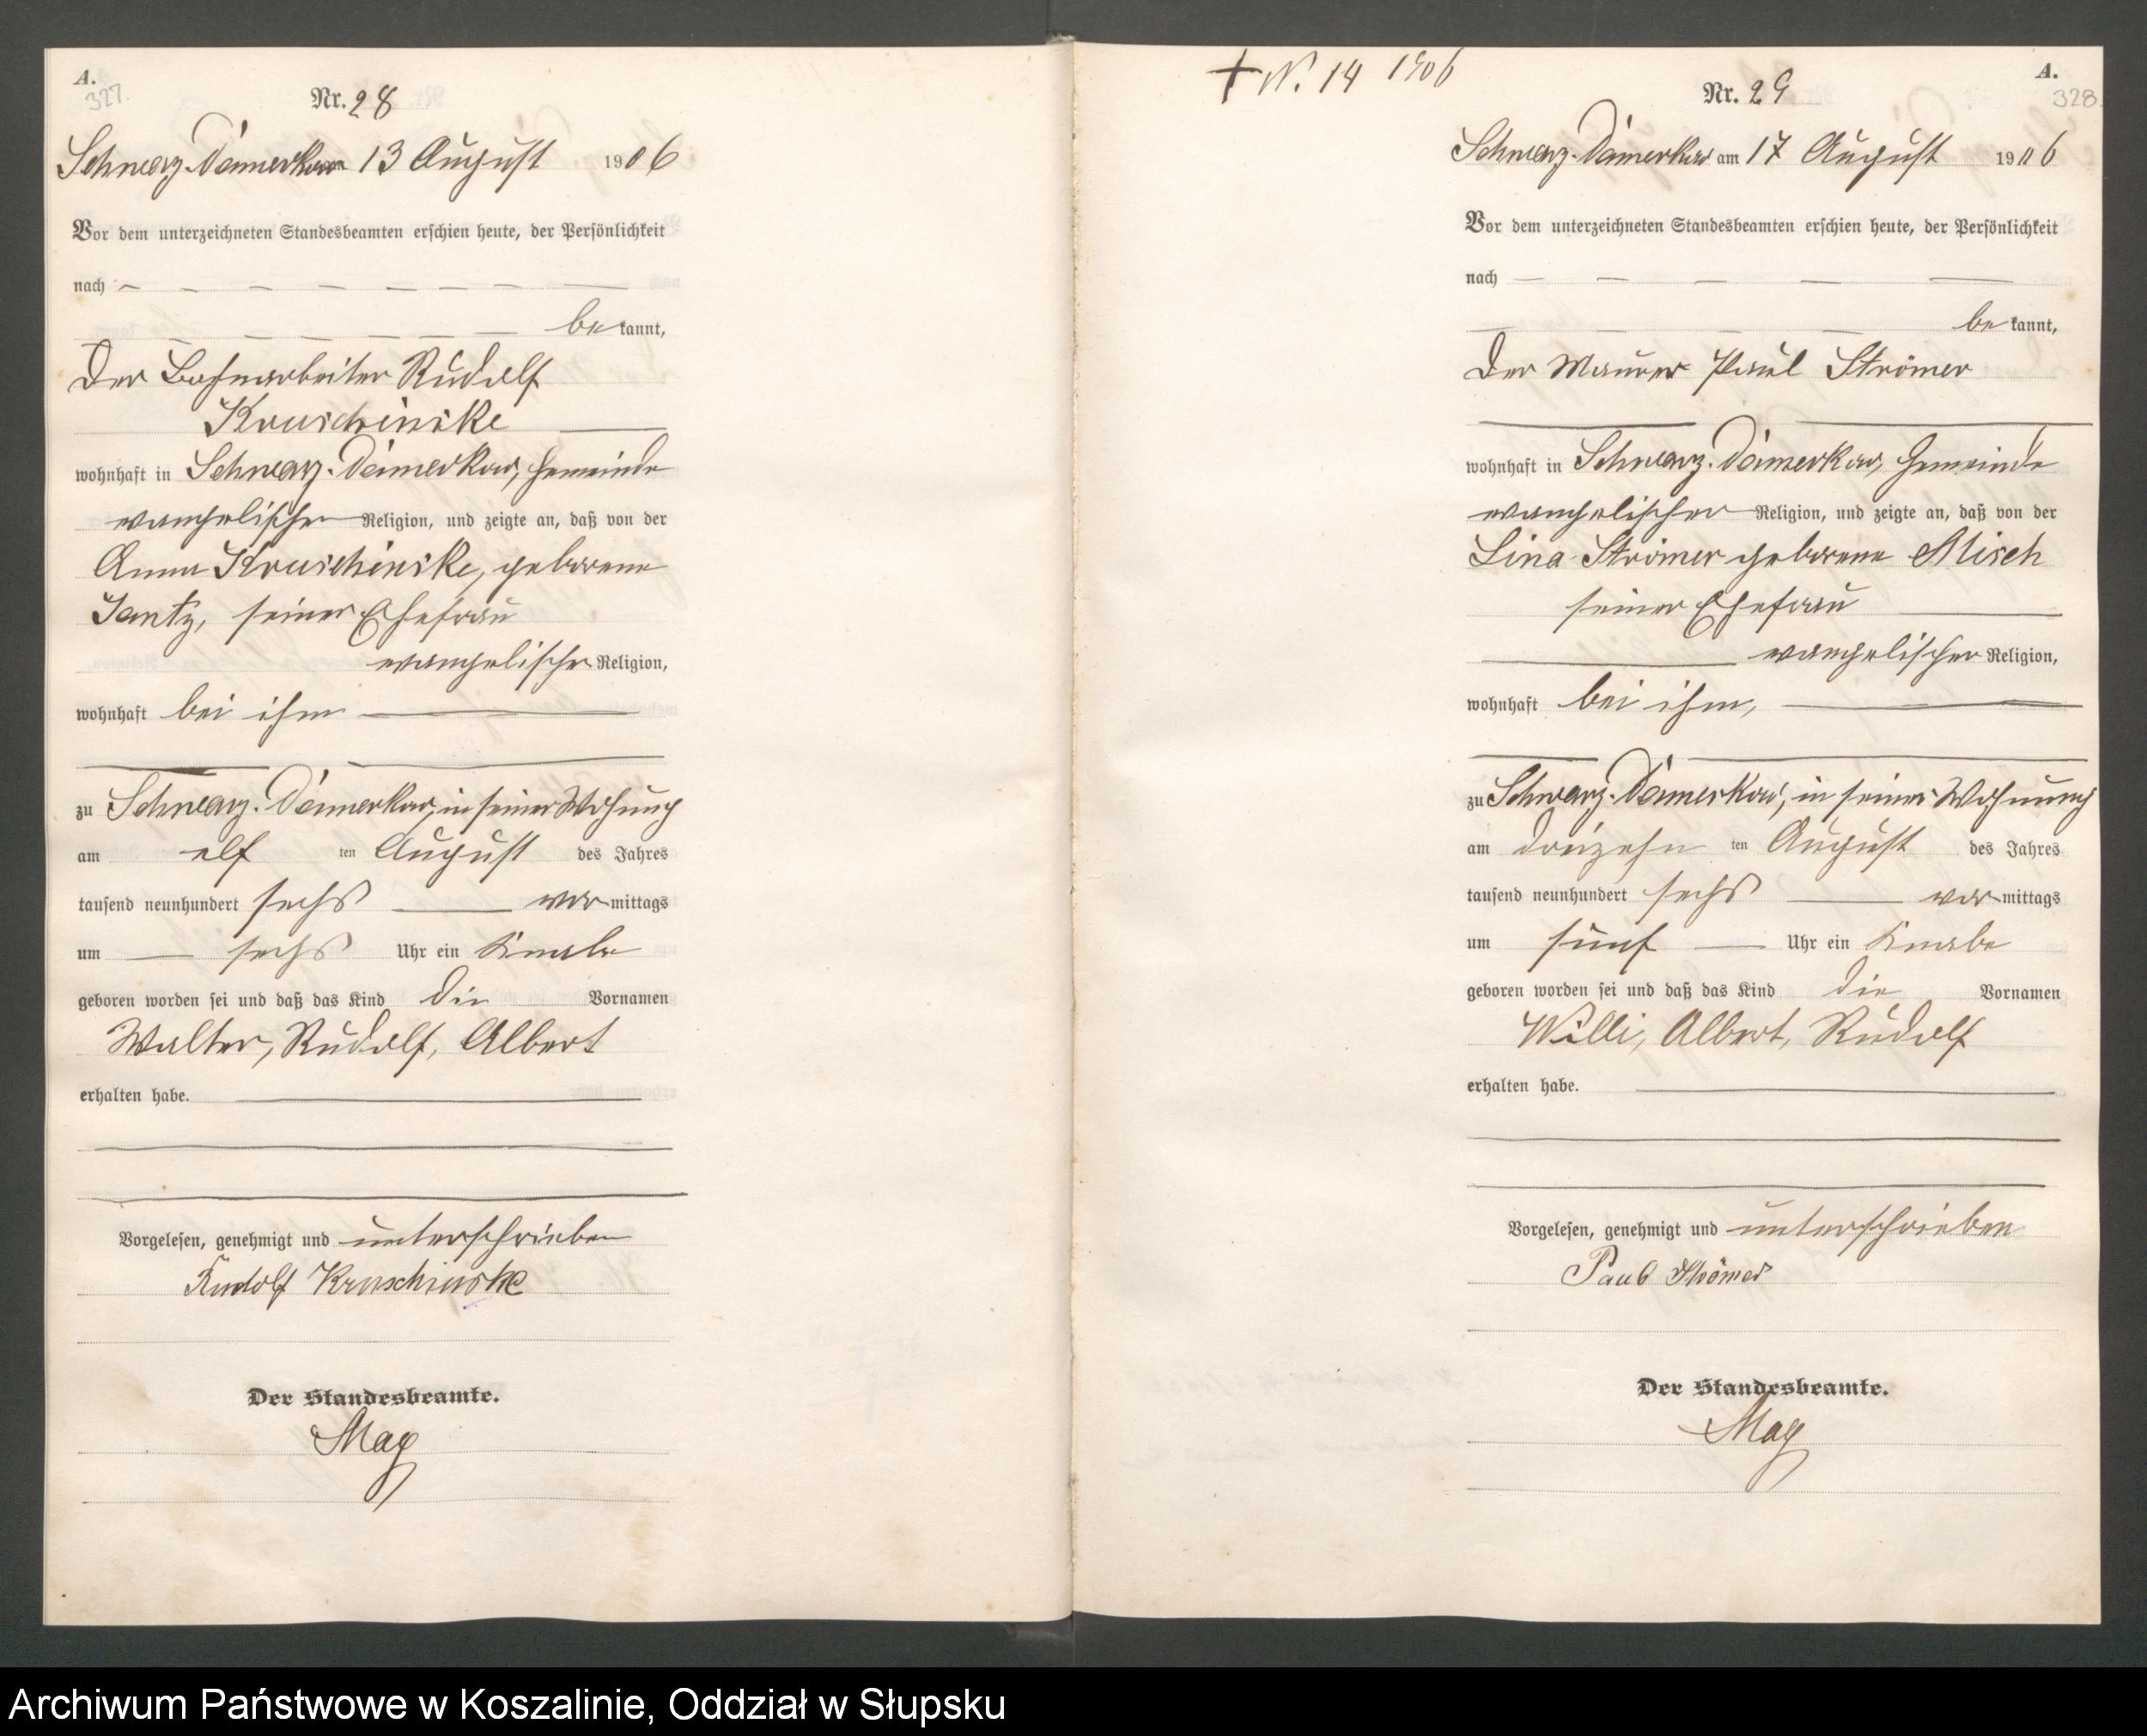 A.
327.
Nr. 28
Schwarz-Damerkow 13 August 1906
Vor dem unterzeichneten Standesbeamten erschien heute, der Persönlichkeit
nach — — — — — — — —
— — — — — — be kannt,
Der Bahnarbeiter Rudolf
Kruschinske
wohnhaft in Schwarz-Damerkow, Gemeinde
evangelischer Religion, und zeigte an, daß von der
Anna Kruschinske, geborene
Jantz, seiner Ehefrau
evangelischer Religion,
wohnhaft bei ihm
zu Schwarz-Damerkow, in seiner Wohnung
am elf ten August des Jahres
tausend neunhundert sechs — vor mittags
um — sechs Uhr ein Knabe
geboren worden sei und daß das Kind die Vornamen
Walter, Rudolf, Albert
erhalten habe.
Vorgelesen, genehmigt und unterschrieben
Rudolf Kruschinske
Der Standesbeamte.
Mag
+ N. 14 1906
A.
328.
Nr. 29
Schwarz-Damerkow am 17 August 1906
Vor dem unterzeichneten Standesbeamten erschien heute, der Persönlichkeit
nach — — — — —
— — — — be kannt,
Der Maurer Paul Strömer
wohnhaft in Schwarz-Damerkow, Gemeinde
evangelischer Religion, und zeigte an, daß von der
Lina Strömer geborene Misch
seiner Ehefrau
evangelischer Religion,
wohnhaft bei ihm,
zu Schwarz-Damerkow, in seiner Wohnung
am dreizehn ten August des Jahres
tausend neunhundert sechs — vor mittags
um fünf — Uhr ein Knabe
geboren worden sei und daß das Kind die Vornamen
Willi, Albert, Rudolf
erhalten habe.
Vorgelesen, genehmigt und unterschrieben
Paul Strömer
Der Standesbeamte.
Mag
Archiwum Państwowe w Koszalinie, Oddział w Słupsku